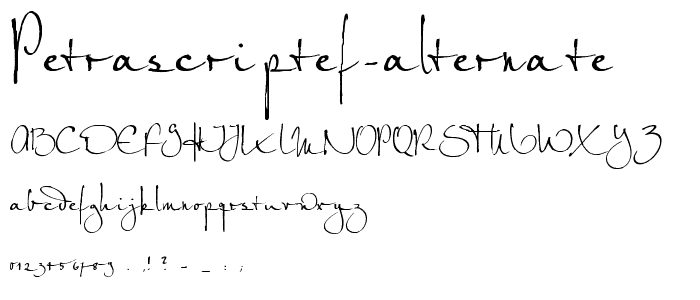 Petrascriptef-alternate
ABCDEFGHIJKLMNOPQRSTUVWXYZ
abcdefghijklmnopqrstuvwxyz
0123456789 . , ! ? - _ : ;